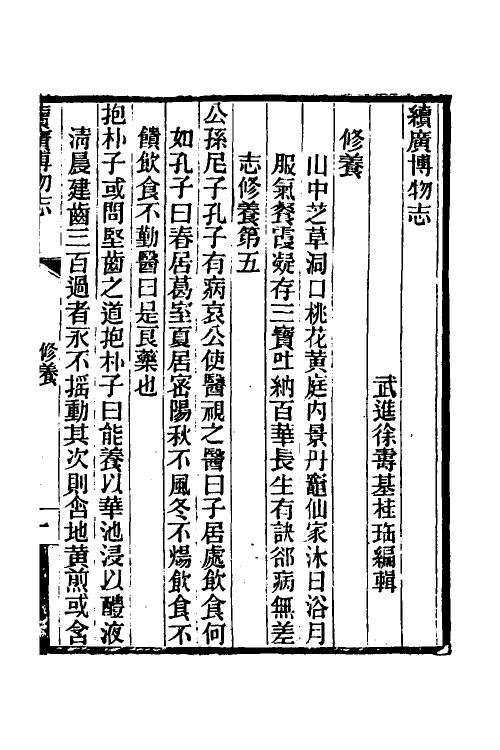 續廣博物志
武進徐壽基桂珤編輯
修養
山中芝草洞口桃花黃庭內景丹竈仙家沐日浴月
服氣餐霞凝存三寶吐納百華長生有訣卻病無差
志修養第五
公孫尼子孔子有病哀公使醫視之醫曰子居處飲食何
如孔子曰春居葛室夏居密陽秋不風冬不煬飲食不
饋飲食不勤醫曰是良藥也
抱朴子或問堅齒之道抱朴子曰能養以華池浸以醴液
淸晨建齒三百過者永不搖動其次則含地黃煎或含
續廣博物志
修養
一